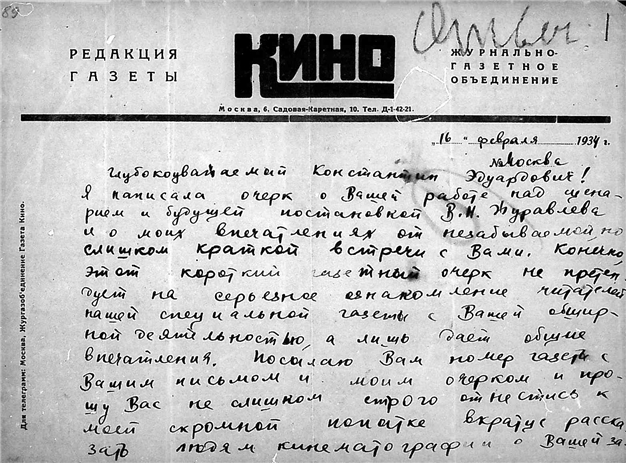 89
Ответ 1
РЕДАКЦИЯ
ГАЗЕТЫ
КИНО
ЖУРНАЛЬНО-
ГАЗЕТНОЕ
ОБЪЕДИНЕНИЕ
Москва, 6. Садовая-Каретная, 10. Тел. Д-1-42-21.
„16" февраля 1934 г.
Москва
Глубокоуважаемый Константин Эдуардович!
Я написала очерк о Вашей работе над сцена-
рием и будущей постановкой В.Н. Журавлева
и о моих впечатлениях от незабываемой но
слишком краткой встречи с Вами. Конечно,
этот короткий газетный очерк не претен-
дует на серьезное ознакомление читателей
нашей специальной газеты с Вашей обшир-
ной деятельностью, а лишь дает общие
впечатления. Посылаю Вам номер газеты с
Вашим письмом и моим очерком и про-
шу Вас не слишком строго отнестись к
моей скромной попытке вкратце расска
зать людям кинематографии о Вашей за-
Для телеграмм: Москва, Жургазоб'единение Газета Кино.